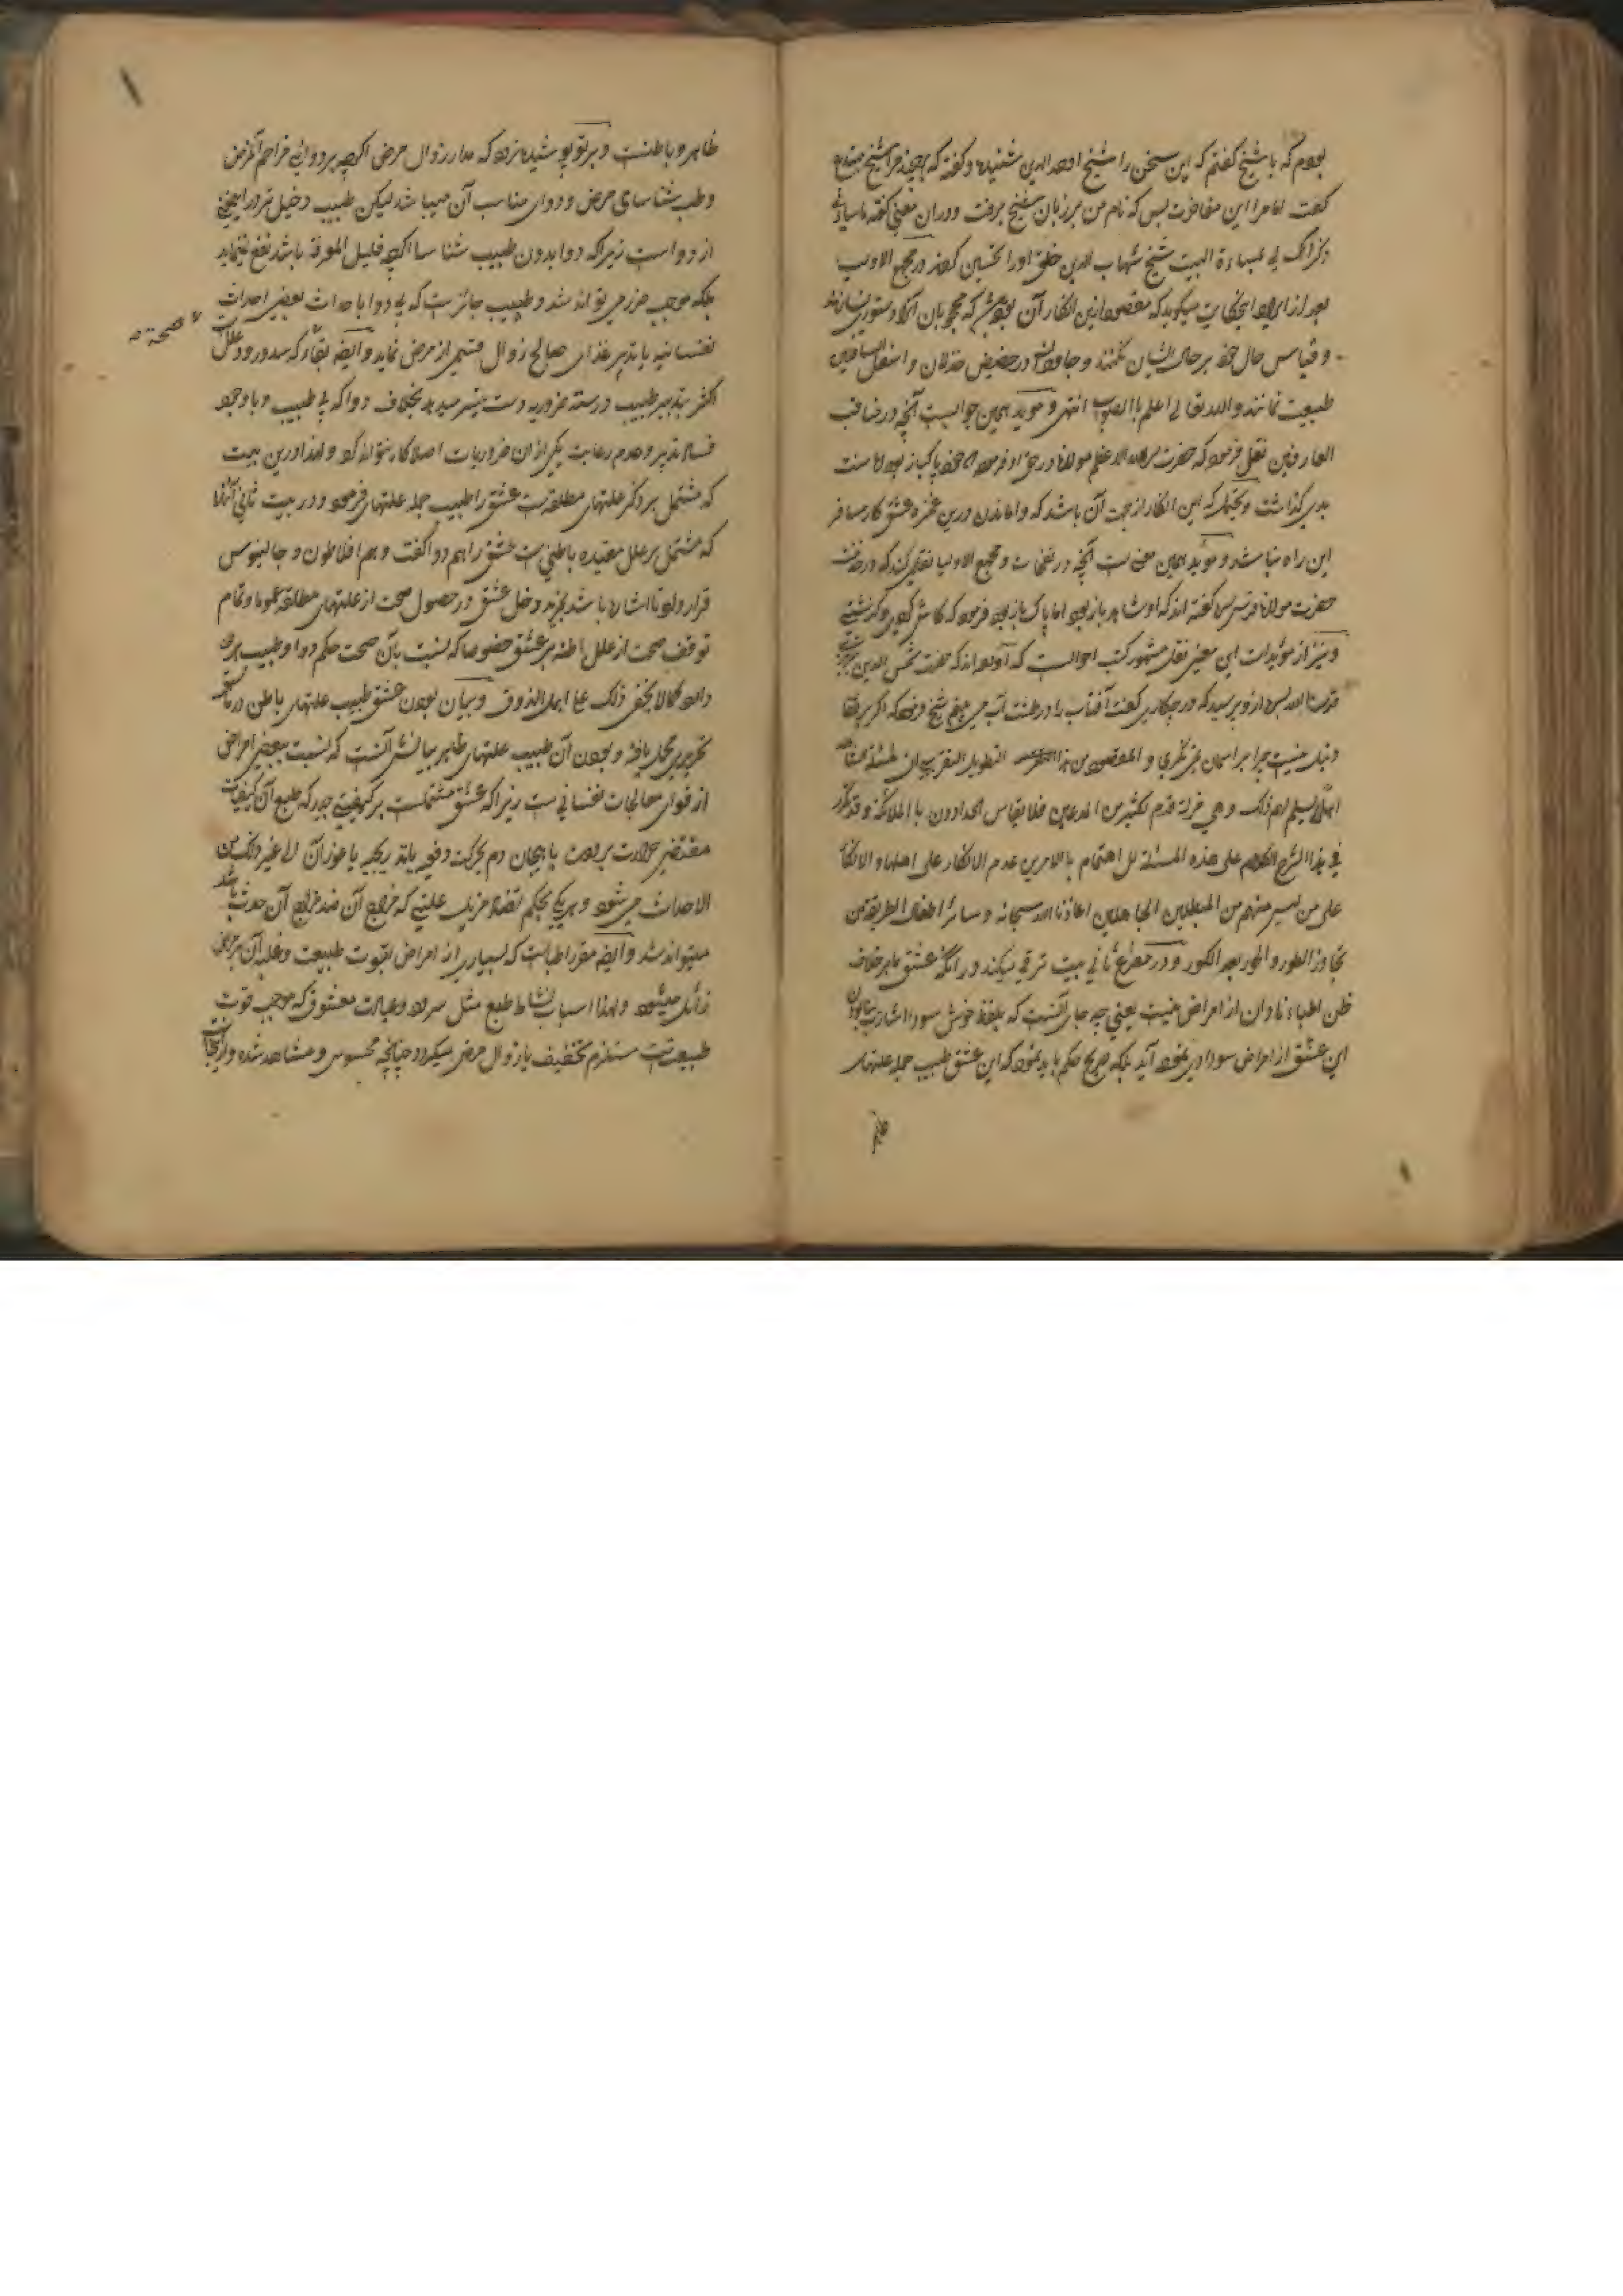 بودم که با شیخ گفتم که این سخن را شیخ اوحدالدین شنیده و گفته که هر چند مرا شیخ مبتدع
گفت اما مرا این مفاخرت بس که نام من بر زبان شیخ برفت و در آن معنی گفته ما ساءنی
ذکراک لی بمساءة البیت شیخ شهاب الدین خلق او را تحسین کردند در مجمع الاولیا
بعد از ایراد این حکایت میگوید که مقصود ازین انکار آن بود که محجوبان آنرا دستوری نسازند
و قیاس حال خود بر حال ایشان نکنند و جاودان در حضیض خذلان و اسفل السافلین
طبیعت نمانند والله تعالی اعلم بالصواب انتهی و موید همین جوابست آنچه در مناقب
العارفین نقل فرموده که حضرت مولانا در حق او فرموده پاکباز بود اما سنت
بدی گذاشت و که این انکار از جهت آن باشد که واماندن درین عشق کار مسافر
این راه نباشد و موید همین معنی ست آنچه در نفحات و مجمع الاولیا نقل میکند که در خدمت
حضرت مولانا قدس سره گفته اند که او شاهد باز بود اما پاک باز بود فرمود که کاش کردی و گذشتی
و نیز از مؤیدات این معنی نقل مشهور کتب احوالست که آورده اند که حضرت شمس الدین تبریزی
قدسنا الله بسره از و پرسید که در چه کاری گفت آفتاب را در طشت آب می بینم شیخ فرمود که اگر بر قفا
دنبل نیست چرا بر آسمان نمی نگری و المقصود من هذا التطویل
لیسلم لهم ذلک و هی مزلة قدم لکثیر من المدعین فلا یقاس الحدادون بالملائکة و قد
فی هذا الشرح الکلام علی هذه المسئلة لل اهتمام بالامرین عدم الانکار علی اهلها و الانکار
علی من لیس منهم من المبطلین الجاهلین اعاذنا الله سبحانه و سائر اطفال الطریقة من
تجاوز الطور و الحور بعد الکور و در مصرع ثانی بیت ترقی میکند در آنکه عشق ما بر خلاف
ظن اطباء نادان از امراض نیست یعنی چه جای آنست که بلفظ خوش سودا اشارت
این عشق از امراض سوداوی نموده آید بلکه صریح حکم باید نمود که این عشق طبیب جمله علتهای
ظاهر و باطنست و بر تو پوشیده نماند که مدار زوال مرض اگر چه بر دوائی مزاحم آنمرض
و طب شناسای مرض و دوای مناسب آن میباشد لیکن طبیب دخیل
از دواست زیرا که دوا بدون طبیب شناسا اگر چه قلیل المعرفة باشد نفع نمی نماید
بلکه موجب ضرر می تواند شد و طبیب جائزست که بی دوا باحداث بعضی احداث
صحة
نفسانیه یا تدبیر غذای صالح زوال قسمی از مرض نماید و ایضا بقا که سدور و علل
اکثر بتدبیر طبیب و رسته ضروریه دست بسر میدهد بخلاف دوا که بی طبیب و با وجود
فساد تدبیر و عدم رعایت یکی از آن ضروریات اصلا کار نتواند کرد و لهذا درین بیت
که مشتمل بر ذکر علتهای مطلقه ست عشق را طبیب جمله علتهای فرمود و در بیت ثانی
که مشتمل بر علل مقیده باطنی ست عشق را هم دوا گفت و هم افلاطون و جالینوس
قرار داد تا اشاره باشد بمزید دخل عشق در حصول صحت از علتهای مطلقه عموما و تمام
توقف صحت از علل باطنه بر عشق خصوصا که نسبت بآن صحت حکم دوا و طبیب هر دو
دارد کما لا یخفی ذلک علی اهل الذوق و بیان بودن عشق طبیب علتهای باطن در
تحریر یافته و بودن آن طبیب علتهای ظاهر بیانش آنست که نسبت ببعضی امراض
از قوای معالجات نفسانی ست زیرا که عشق مشتملست بر کیفیتی چند که طبع آن کیفیات
مقتضی حرارت برودت یا هیجان دم بحرکت دفعیه یا تدریجیه یا غوران الی غیر ذلک من
الاحداث می شود و هر یکی بحکم تضاد مزیل علتی که مزاج آن ضد مزاج آن حدث باشد
میتواند شد و ایضا مقرر اطباست که بسیاری از امراض بقوت طبیعت و غلبه آن بر مرض
زائل میشود و لهذا اسباب نشاط طبع مثل سرود و مجالست معشوق که موجب قوت
طبیعتست مستلزم تخفیف یا زوال مرض میگردد چنانچه محسوس و مشاهد شده و از